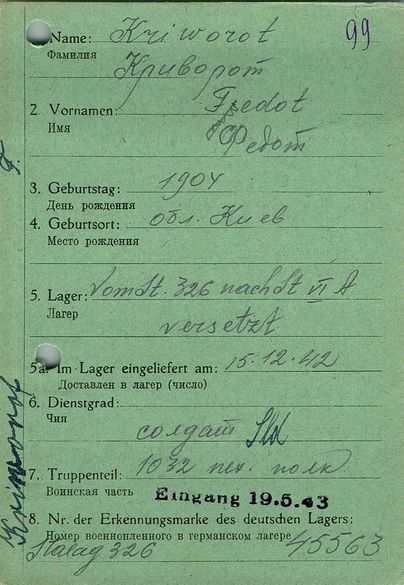 1. Name: Kriworot
99
Фамилия
Криворот
2. Vornamen: Fedot
Имя
Федот
3. Geburtstag: 1904
День рождения
4. Geburtsort: обл. Киев
Место рождения
5. Lager: Vom St. 326 nach St VI A
Лагер
versetzt
5a. Im Lager eingeliefert am: 15.12.42
Доставлен в лагер (число)
6. Dienstgrad:
Чин
солдат Sld
7. Truppenteil: 1032 пех. полк
Воинская часть
Eingang 19.5.43
8. Nr. der Erkennungsmarke des deutschen Lagers:
Номер военнопленного в германском лагере
Stalag 326 45563
Kriworot F.